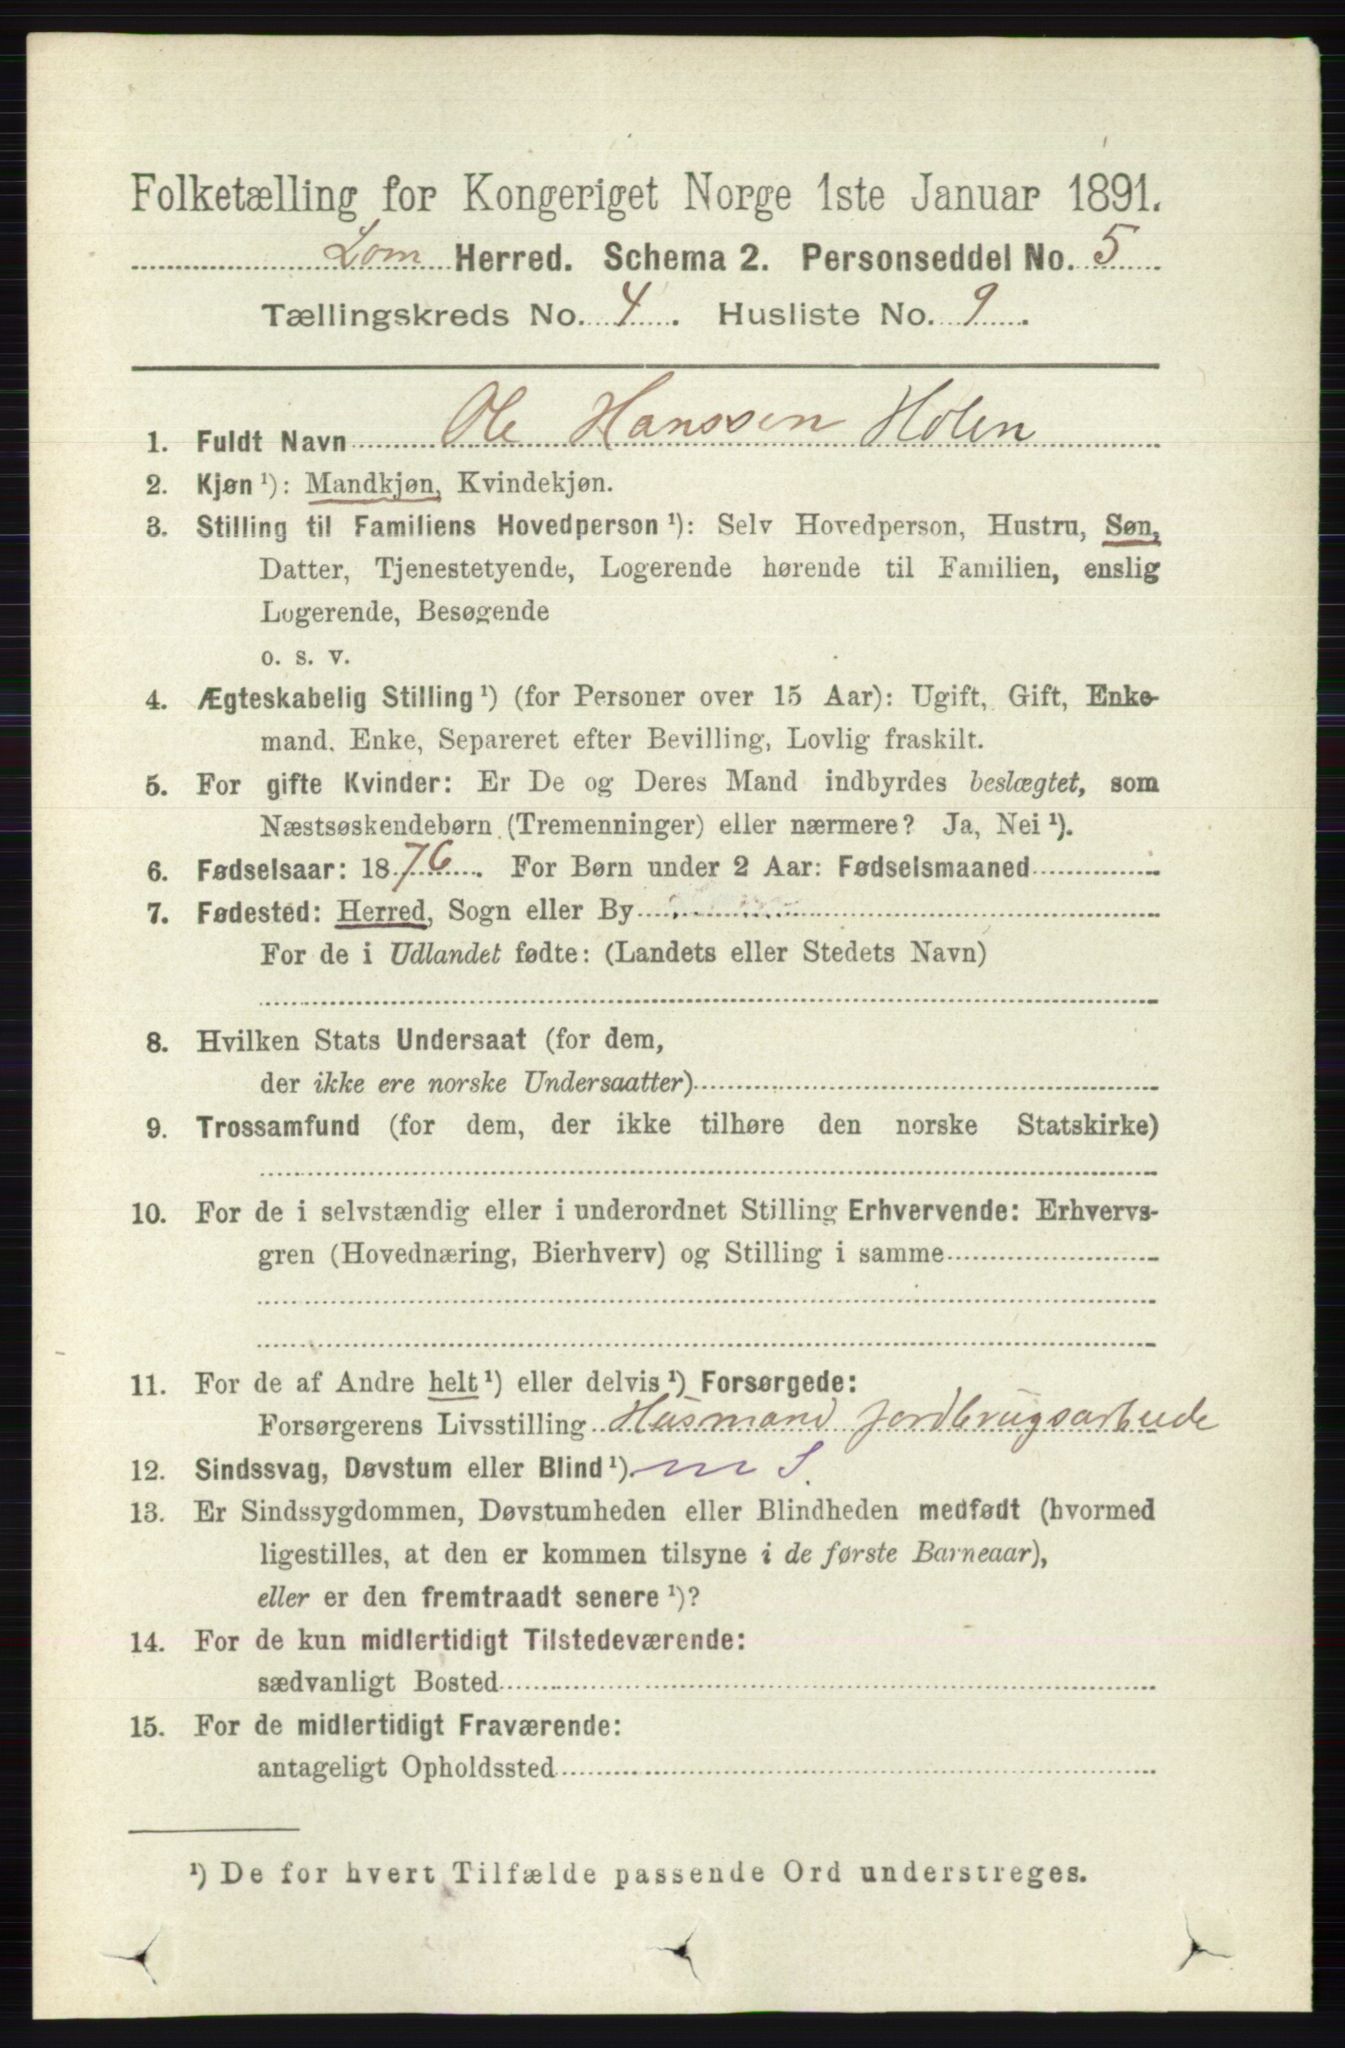 Folketælling for Kongeriget Norge 1ste Januar 1891.
Lom Herred. Schema 2. Personseddel No. 5
Tællingskreds No. 4. Husliste No. 9.
1. Fuldt Navn Ole Hanssen Holen
2. Kjøn ¹): Mandkjøn, Kvindekjøn.
3. Stilling til Familiens Hovedperson ¹): Selv Hovedperson, Hustru, Søn,
Datter, Tjenestetyende, Logerende hørende til Familien, enslig
Logerende, Besøgende
o. s. v.
4. Ægteskabelig Stilling ¹) (for Personer over 15 Aar): Ugift, Gift, Enke-
mand, Enke, Separeret efter Bevilling, Lovlig fraskilt.
5. For gifte Kvinder: Er De og Deres Mand indbyrdes beslægtet, som
Næstsøskendebørn (Tremenninger) eller nærmere? Ja, Nei ¹).
6. Fødselsaar: 1876. For Børn under 2 Aar: Fødselsmaaned
7. Fødested: Herred, Sogn eller By
For de i Udlandet fødte: (Landets eller Stedets Navn)
8. Hvilken Stats Undersaat (for dem,
der ikke ere norske Undersaatter)
9. Trossamfund (for dem, der ikke tilhøre den norske Statskirke)
10. For de i selvstændig eller i underordnet Stilling Erhvervende: Erhvervs-
gren (Hovednæring, Bierhverv) og Stilling i samme
11. For de af Andre helt ¹) eller delvis ¹) Forsørgede:
Forsørgerens Livsstilling Husmand jordbrugsarbeide
12. Sindssvag, Døvstum eller Blind ¹).
13. Er Sindssygdommen, Døvstumheden eller Blindheden medfødt (hvormed
ligestilles, at den er kommen tilsyne i de første Barneaar),
eller er den fremtraadt senere ¹)?
14. For de kun midlertidigt Tilstedeværende:
sædvanligt Bosted
15. For de midlertidigt Fraværende:
antageligt Opholdssted
¹) De for hvert Tilfælde passende Ord understreges.